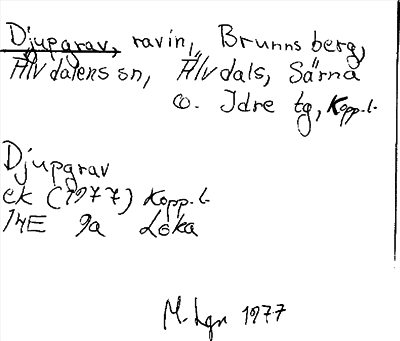 Djupgrav, ravin, Brunnsberg,
Älvdalens sn, Älvdals, Särna
o. Idre tg, Kopp.l.
Djupgrav
ek (1977) Kopp.l.
14E 9a Loka
M. Lgr 1977